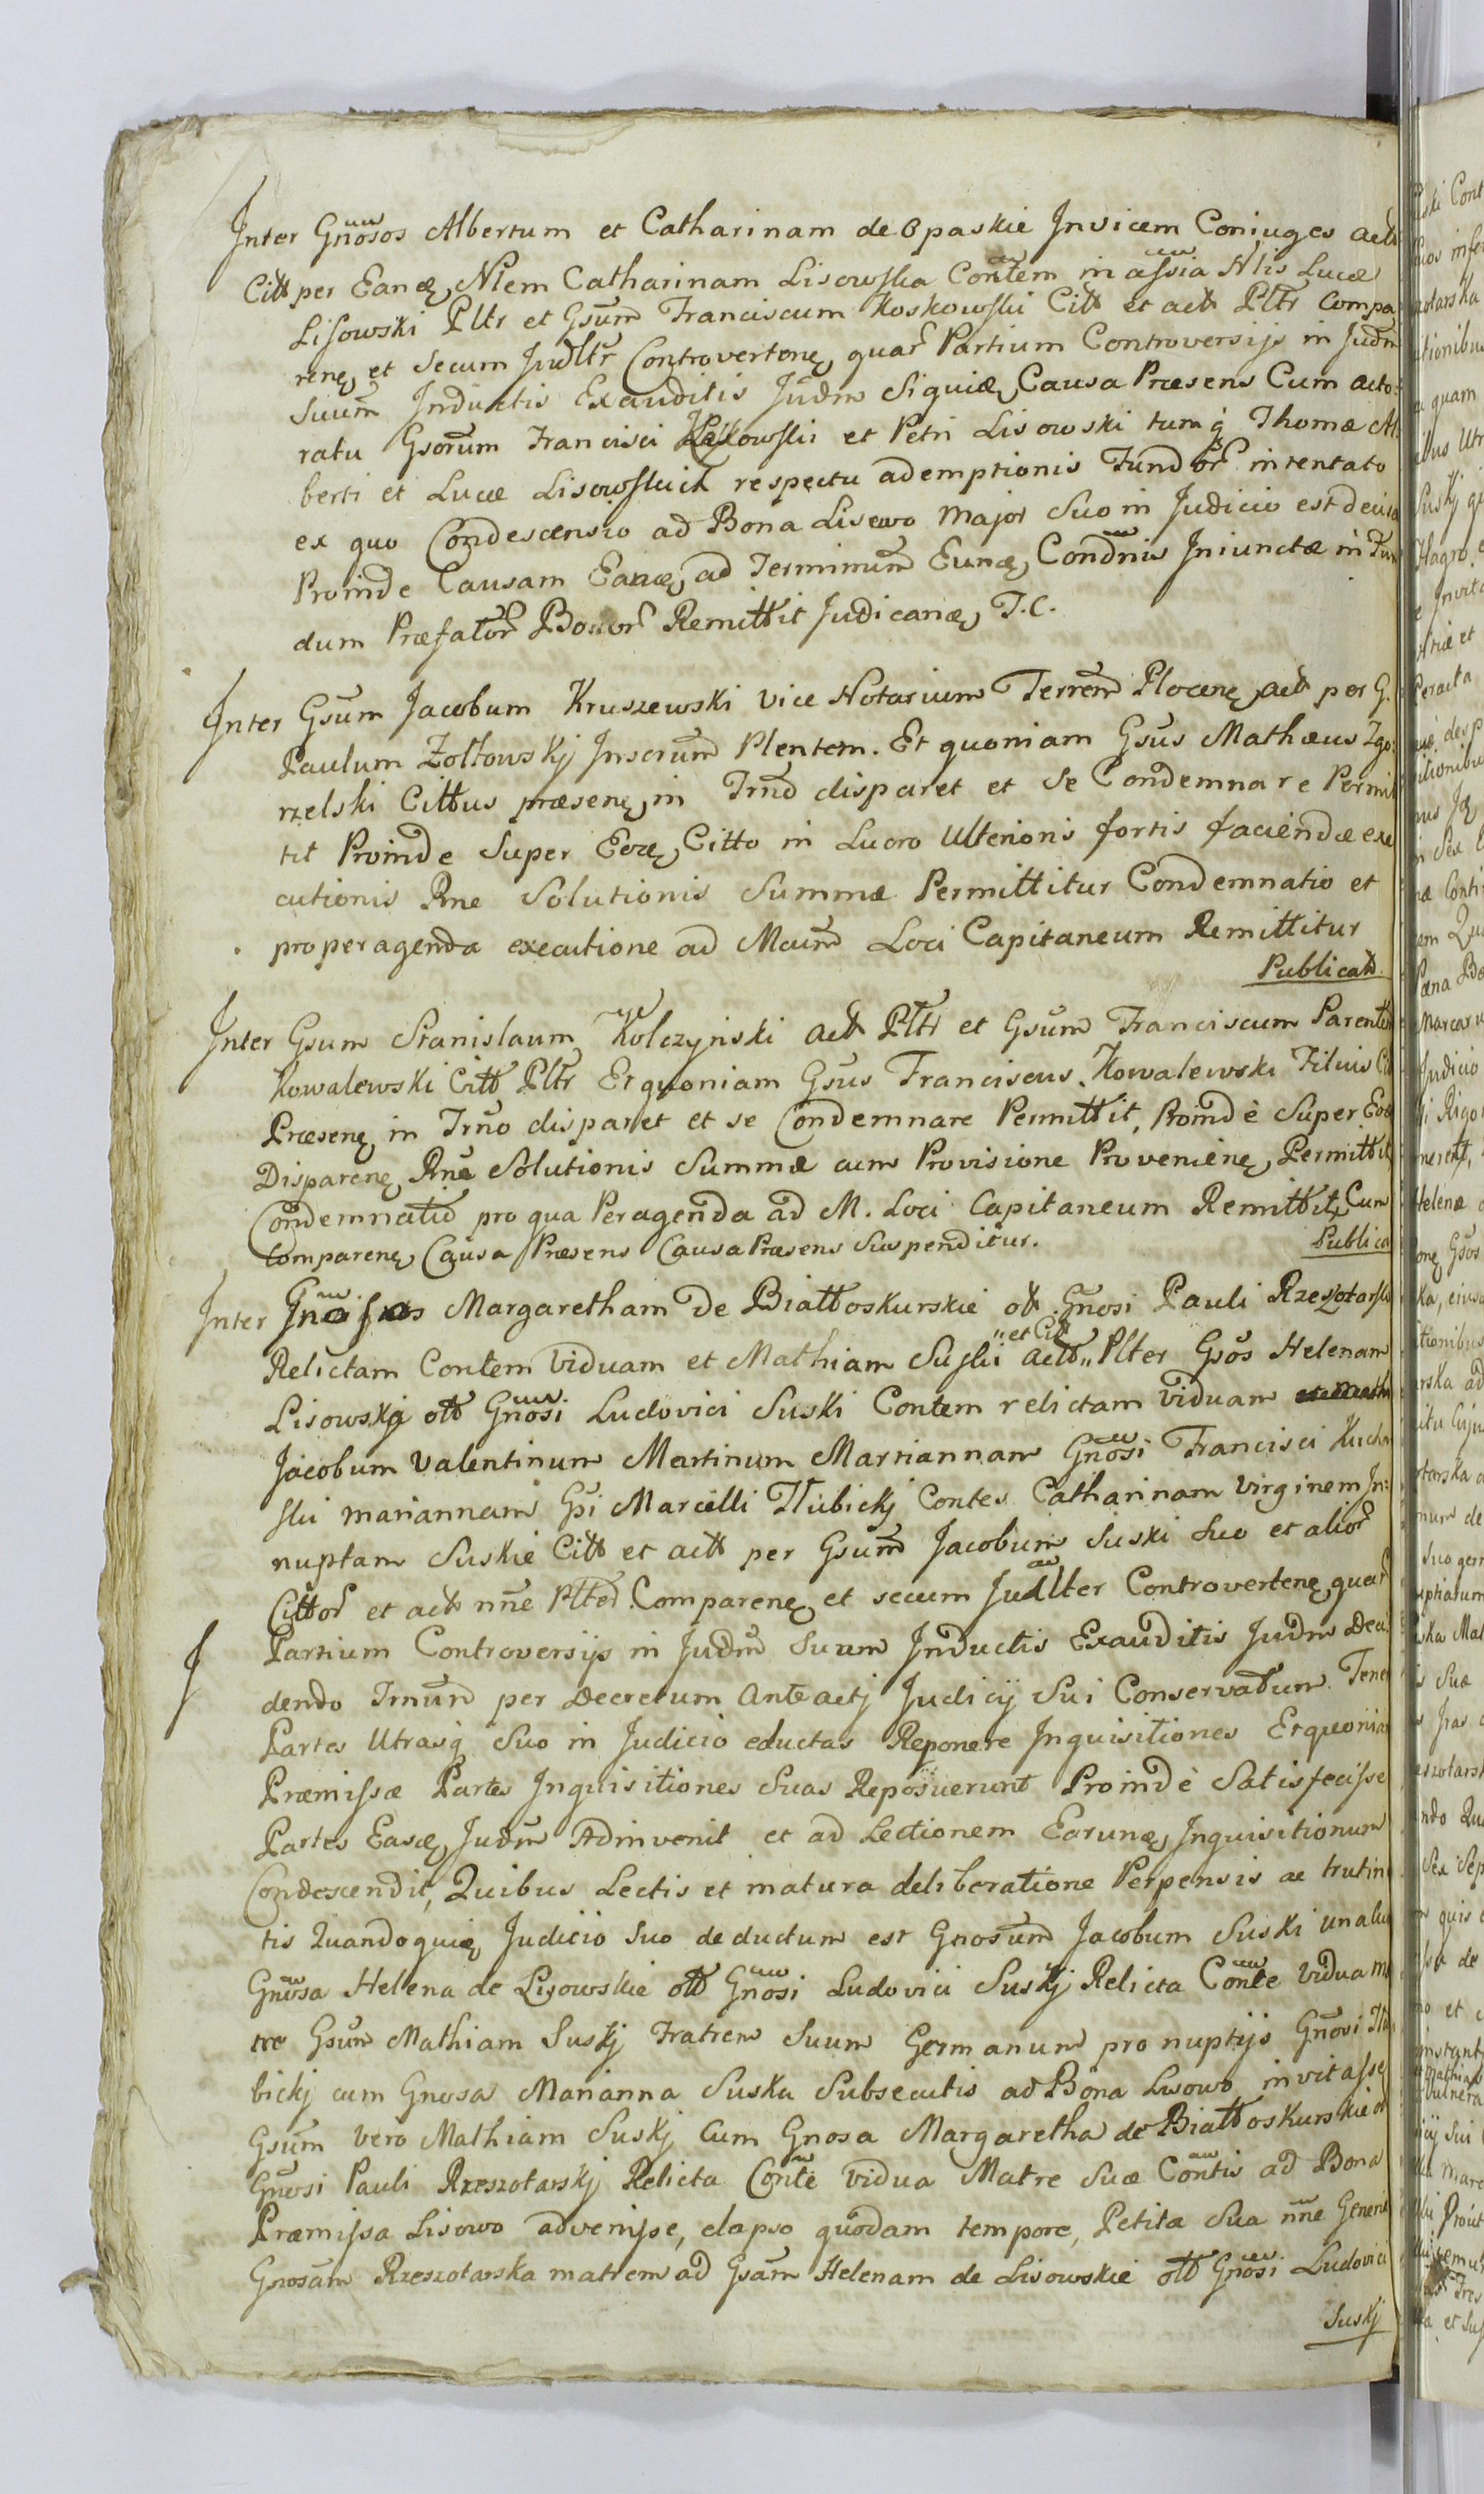 Inter Gnosos Albertum et Catharinam de Opaskie Invicem Coniuges actt
Citt per Eandę Nlem Catharinam Lisowska Contem in assia Nlis Lucæ
Lisowski Pltr et Gsum Franciscum Koskowski Citt et actt Pltr Compa
renę et Secum Judltr Controvertenę quar Partium Controversijs in Judm
Suum Inductis Exauditis Judm Siquidę Causa Præsens Cum acto:
ratu Gsorum Francisci Koskowski et Petri Lisowski tum q Thomæ Al
berti et Lucæ Lisowskich respectu ademptionis Fundor intentato
ex quo Condescensio ad Bona Lisewo Major Suo in Judicio est decisa
Proinde Causam Eandę ad Terminum Eundę Condnis Iniunctæ in Fun
dum Præfator Bonor Remittit Judicandę T. C.
Inter Gsum Jacobum Kruszewski Vice Notarium Terrem Plocenę actt per G.
Paulum Zołtowskj Inscrum Plentem. Et quoniam Gsus Mathæus Zgo:
rzelski Cittus præsenę in Trno disparet et Se Condemnare Permit
tit Proinde Super Eodę Citto in Lucro Ulterioris fortis faciendæ exe
cutionis Rne Solutionis Summæ Permittitur Condemnatio et
pro peragenda executione ad Mcum Loci Capitaneum Remittitur
Publicatt
Inter Gsum Stanislaum Kolczynski actt Pltr et Gsum Franciscum Parentem
Kowalewski Citt Pltr Et quoniam Gsus Franciscus Kowalewski Filius Citt
Præsenę in Trno disparet et se Condemnare Permittit, Proindè Super Eodę
Disparenę Rne Solutionis Summæ cum Provisione Provenienę Permittit
Condemnatio pro qua Peragenda ad M. Loci Capitaneum Remittit, Cum
Comparenę Causa Præsens Causa Præsens Suspenditur.
Publica
Inter Gnosos Margaretham De Białłoskurskie ott Gnosi Pauli Rzeszotarski
Relictam Contem Viduam et Mathiam Suski actt "et Citt" Plter Gsos Helenam
Lisowską ott Gnosi Ludovici Suski Contem relictam Viduam
Jacobum Valentinum Martinum Marriannam Gnosi Francisci Kucha
ski mariannam Gsi Marcelli Hłubickj Contes Catharinam Virginem In:
nuptam Suskie Citt et actt per Gsum Jacobum Suski Suo et alior
Cittor et actt nne Plted. Comparenę et secum Judlter Controvertenę quar
Partium Controversijs in Judm Suum Inductis Exauditis Judm Deci
dendo Trnum per Decretum Ante actj Judicij Sui Conservatum. Tenen
Partes Utrasq Suo in Judicio eductas Reponere Inquisitiones Et quoniam
Præmissæ Partes Inquisitiones Suas Reposuerunt Proindè Satisfecisse
Partes Easdę Judm Adinvenit et ad Lectionem Earundę Inquisitionum
Condescendit, Quibus Lectis et matura deliberatione Perpensis ac trutina
tis Quandoquidę Judicio Suo deductum est Gnosum Jacobum Suski una cum
Gnosa Helena de Lisowskie ott Gnosi Ludovici Suskj Relicta Conte Vidua ma
tre Gsum Mathiam Suskj Fratrem Suum Germanum pro nuptijs Gnosi Hłu
bickj cum Gnosa Marianna Suska Subsecutis ad Bona Lisowo invitasse
Gsum Vero Mathiam Suskj Cum Gnosa Margaretha de Białłoskurskie ott
Gnosi Pauli Rzeszotarskj Relicta Conte Vidua Matre Suæ Contis ad Bona
Præmissa Lisowo advenisse, elapso quodam tempore, Petita Sua nne Generis
Gnosam Rzeszotarska matrem ad Gsam Helenam de Lisowskie ott Gnosi Ludovici
Suskj